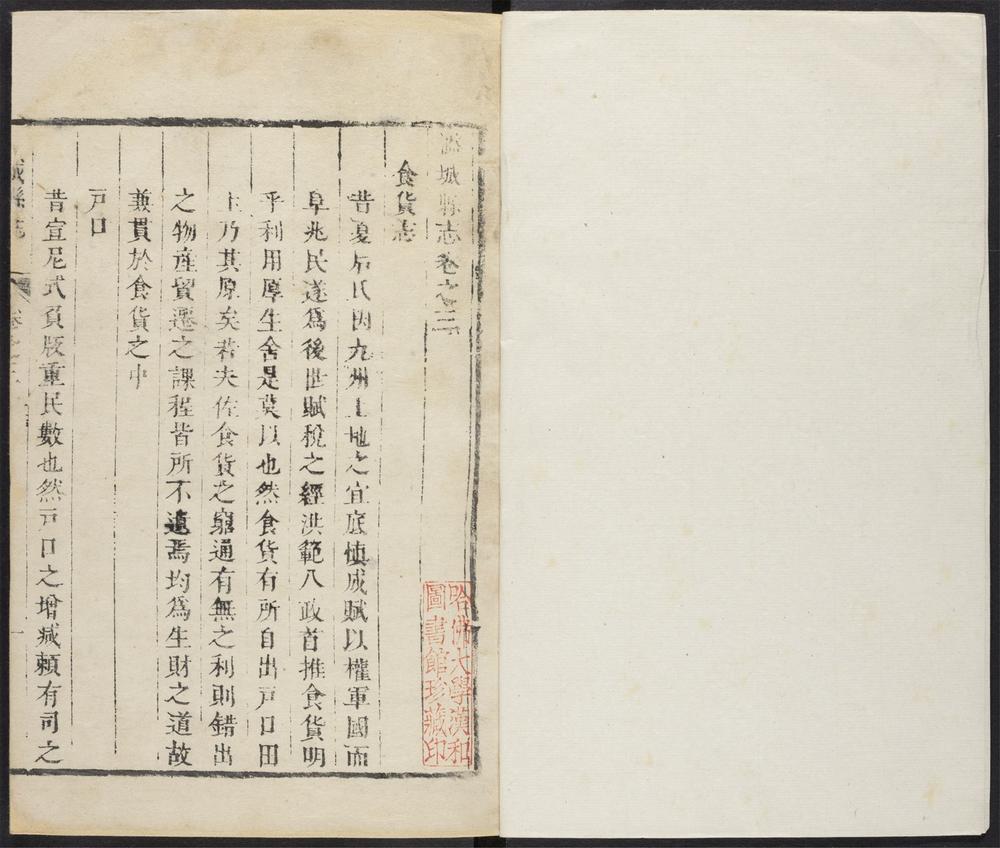 城縣志卷之三
食貨志
昔夏后氏因九州土地之宜底慎成賦以權軍國而
阜兆民遂為後世賦稅之經洪範八政首推食貨明
乎利用厚生舍是莫以也然食貨有所自出戸口田
土乃其原矣若夫佐食貨之窮通有無之利則錯出
之物產貿遷之課程皆所不遺焉均為生財之道故
兼貫於食貨之中
戸口
昔宣尼式負版重民數也然戸口之增減賴有司之
城縣志
卷之三
一
哈佛大學漢和
圖書館珍藏印